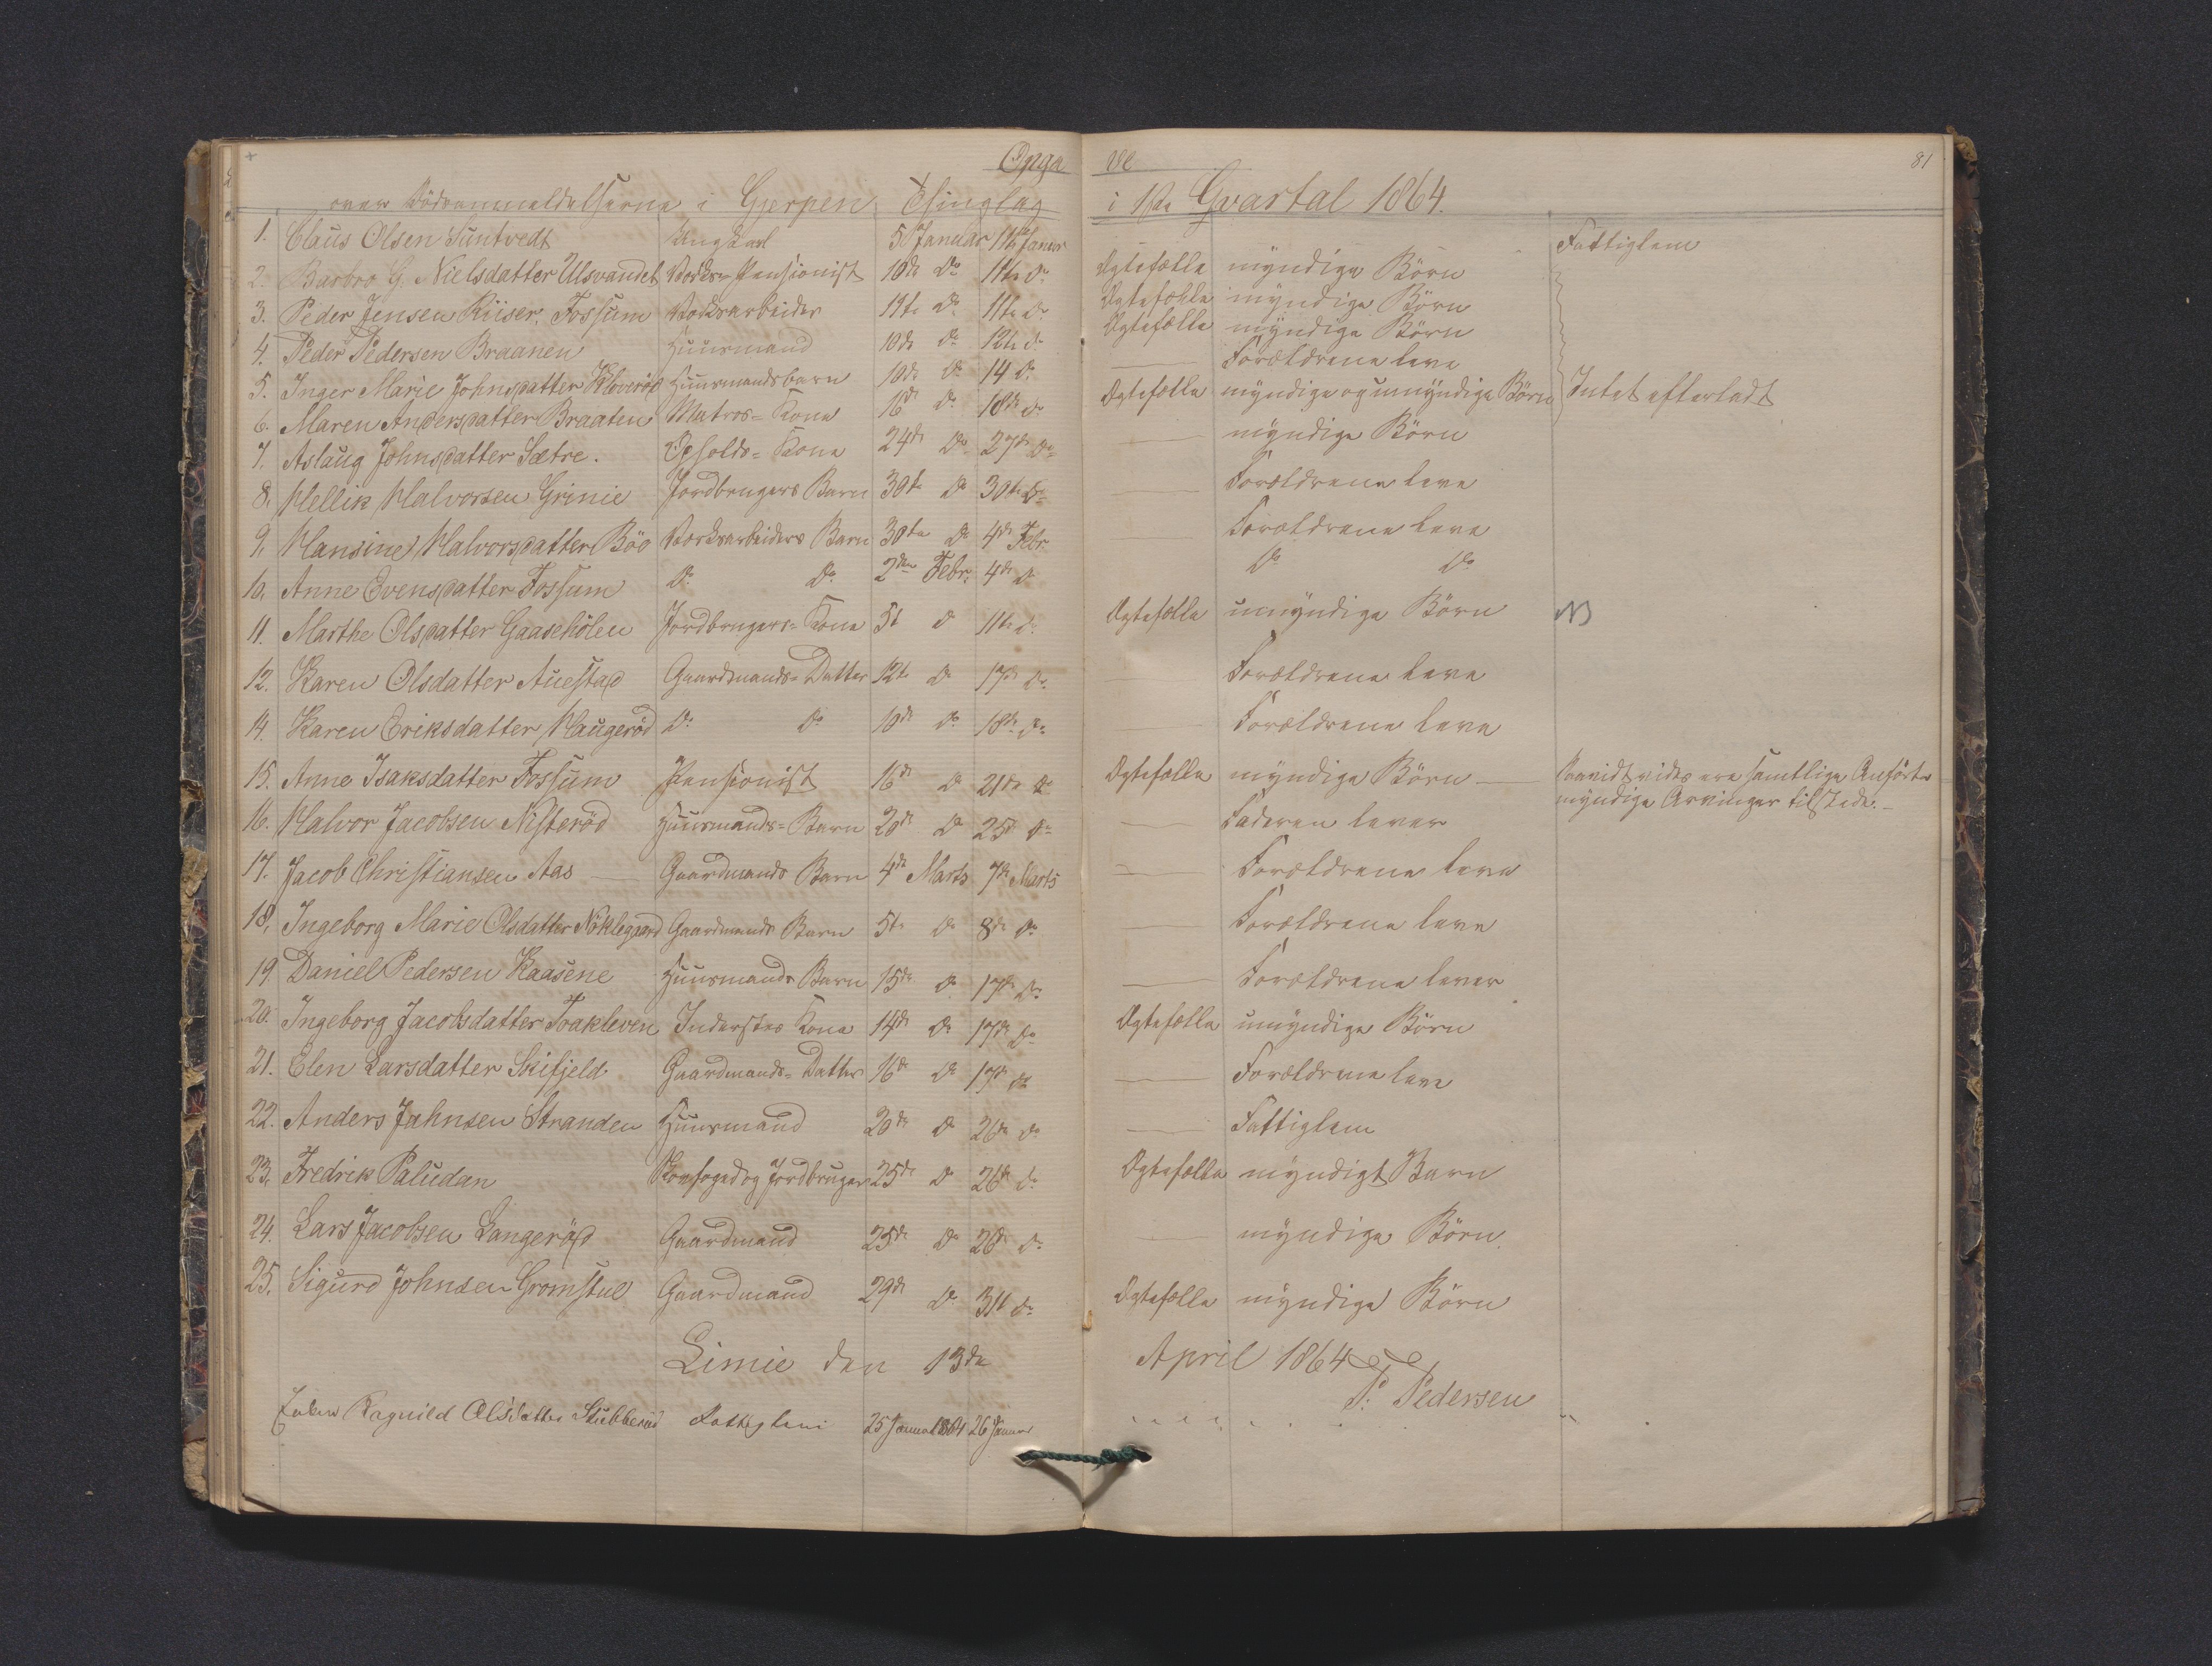 Opga ve 81
over Dödsanmeldelserne i Gjerpen Thinglag i 1ste Qvartal 1864.
1. Claus Olsen Suntvedt Ungkarl 5 Januar 11te Januar Fattiglem
2. Barbro G. Nielsdatter Ulsvandet Værks-Pensionist 10de do 11te do Egtefælle myndige Börn
3. Peder Jensen Riiser, Fossum Værksarbeider 11te do 11te do Egtefælle myndige Börn
4. Peder Pedersen Braanen Huusmand 10de do 12te do Egtefælle myndige Börn
5. Inger Marie Johnsdatter Kloveröd Huusmandsbarn 10de do 14 do Forældrene leve
6. Maren Andersdatter Braaten Matros-Kone 16de do 18de do Egtefælle myndige og umyndige Börn Intet efterladt
7. Aslaug Johnsdatter Sætre. Opholds-Kone 24de do 27de do myndige Börn
8. Hellik Halvorsen Grinie Jordbrugers Barn 30te do 30te do Forældrene leve
9. Hansine Halvorsdatter Böo Værksarbeiders Barn 30te do 4de Febr. Forældrene leve
10. Anne Evensdatter Fossum do do 2den Febr. 4de do do do
11. Marthe Olsdatter Gaasehölen Jordbrugers-Kone 5t do 11te do Egtefælle umyndige Börn NB
12. Karen Olsdatter Auestad Gaardmands-Datter 12te do 17de do Forældrene leve
14. Karen Eriksdatter Haugeröd do do 10de do 18de do Forældrene leve
15. Anne Isaksdatter Fossum Pensionist 16de do 21de do Egtefælle myndige Börn — Saavidt vides ere samtlige Anförte
myndige Arvinger tilstede. —
16. Halvor Jacobsen Nisteröd Huusmands-Barn 20de do 25de do Faderen lever
17. Jacob Christiansen Aas — Gaardmands Barn 4de Marts 7de Marts Forældrene leve
18. Ingeborg Marie Olsdatter Nöklegaard Gaardmands Barn 5te do 8de do Forældrene leve
19. Daniel Pedersen Kaasene Huusmands Barn 15de do 17de do Forældrene lever
20. Ingeborg Jacobsdatter Toakleven Inderstes Kone 14de do 17de do Egtefælle umyndige Börn
21. Elen Larsdatter Skifjeld Gaardmands-Datter 16de do 17de do Forældrene leve
22. Anders Jahnsen Stranden Huusmand 20de do 26de do Fattiglem
23. Fredrik Paludan Skovfoged og Jordbruger 25de do 26de do Egtefælle myndigt Barn
24. Lars Jacobsen Langeröd Gaardmand 25de do 26de do myndige Börn.
25. Sigurd Johnsen Gromstul Gaardmand 29de do 31te do Egtefælle myndige Börn
Limie den 13de April 1864
P. Pedersen
Enken Ragnild Olsdatter Stubberöd Fattiglem 25 Januar 1864 26 Januar